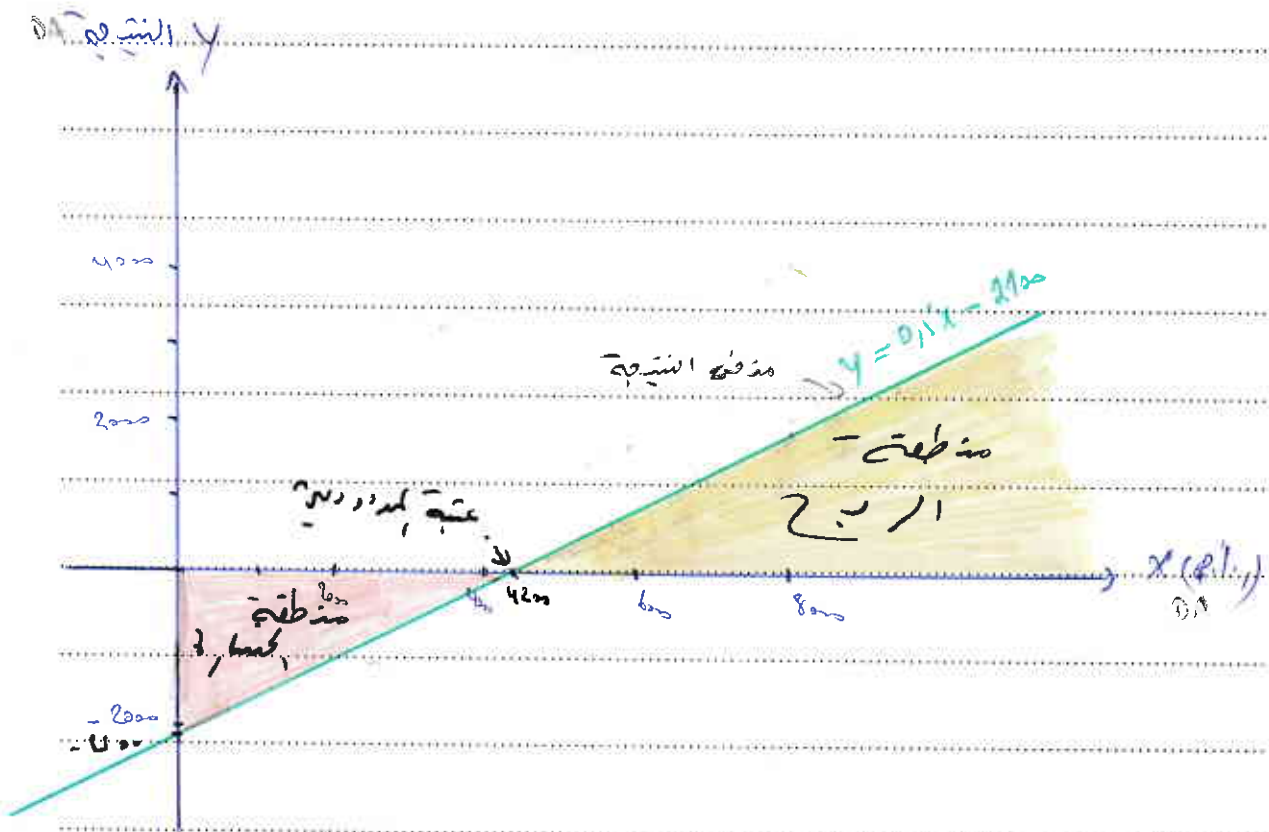 النتيجة Y DA
4000
y = 0,5x - 2100
منحنى النتيجة
2000
منطقة
الربح
عتبة المردودية
X (ر.أ)
DA
2000
4000
4200
6000
8000
منطقة
الخسارة
- 2000
- 2100